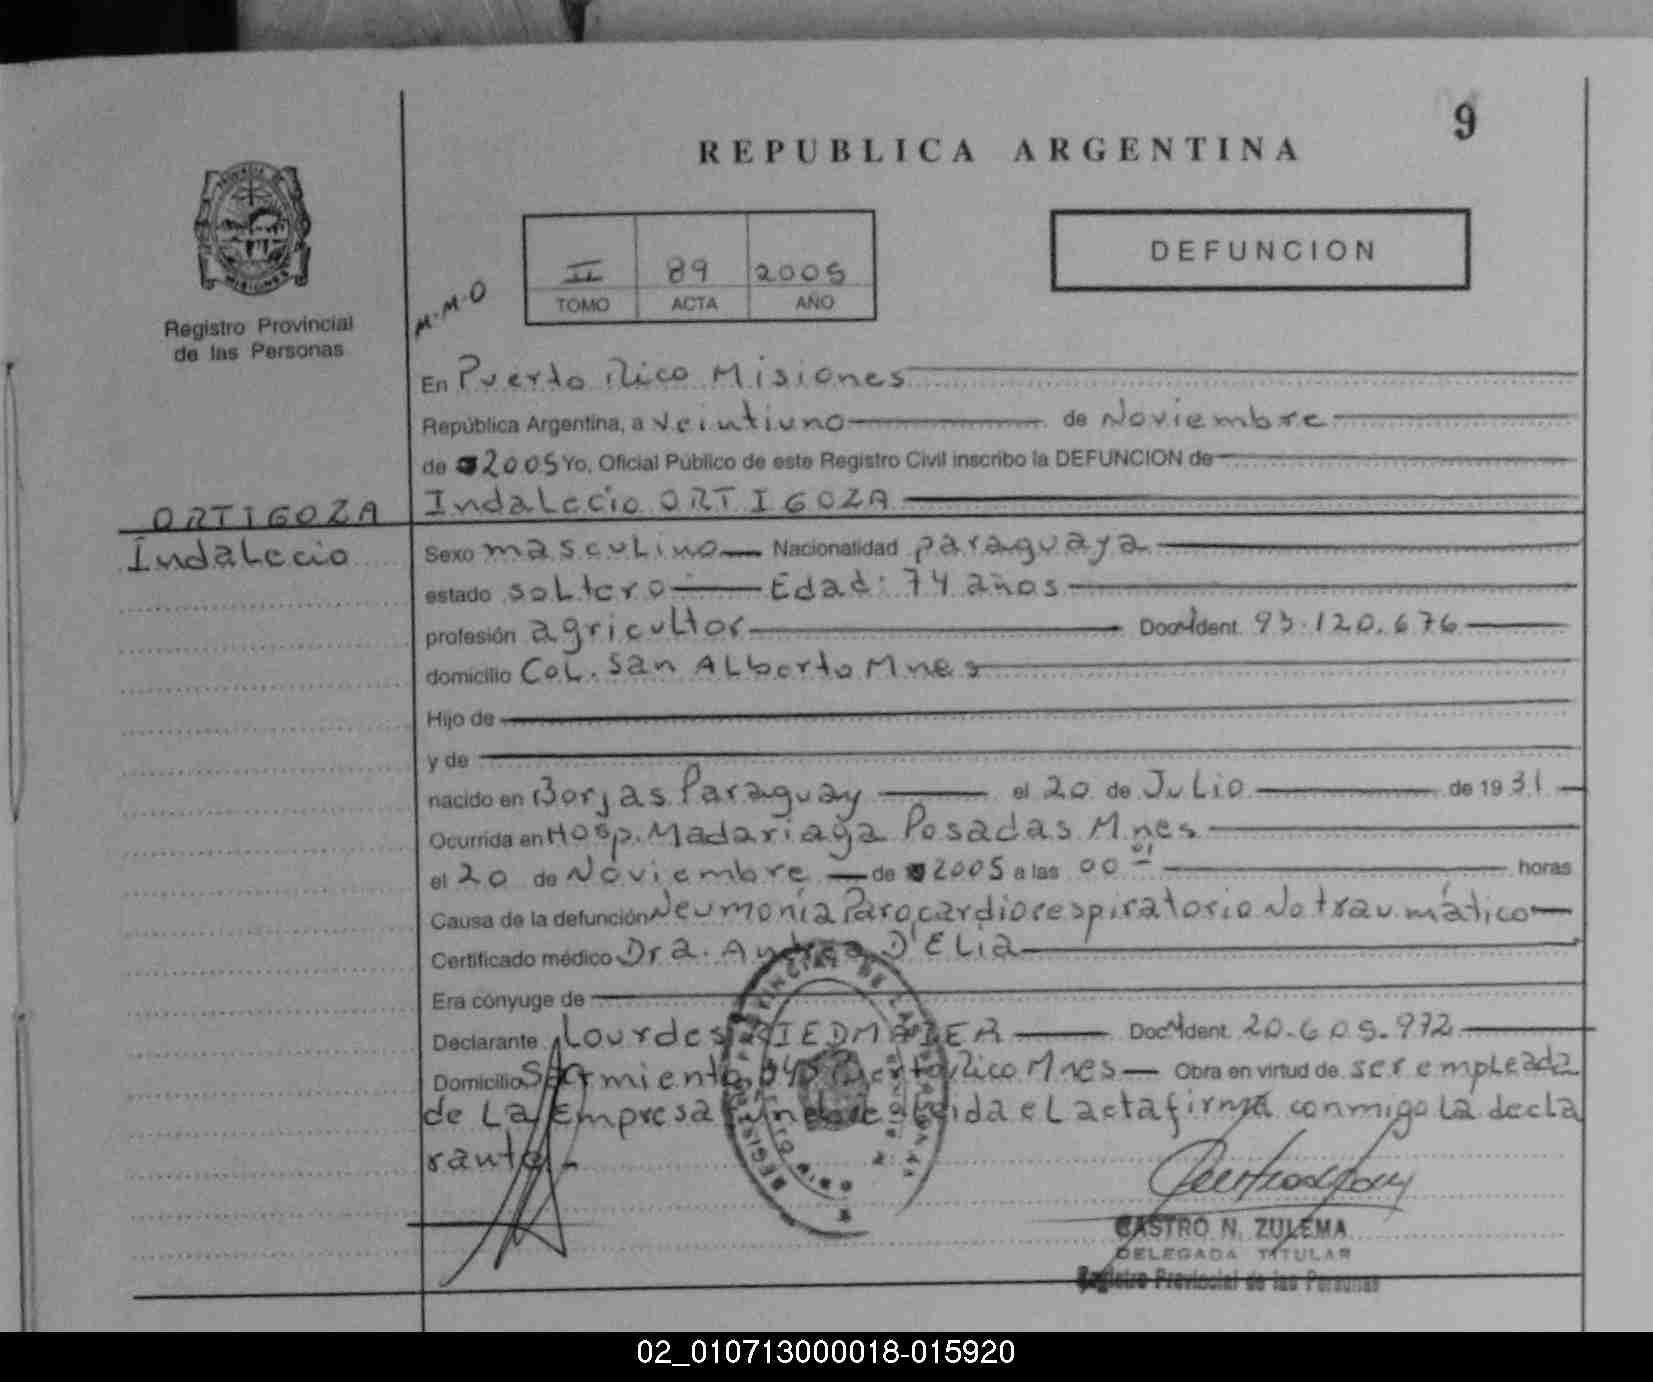 9
REPUBLICA ARGENTINA
DEFUNCION
II 89 2005
TOMO ACTA AÑO
M.M.O
MISIONES
Registro Provincial
de las Personas
ORTIGOZA
Indalecio
En Puerto Rico Misiones
República Argentina, a veintiuno de Noviembre
de 2005 Yo, Oficial Público de este Registro Civil inscribo la DEFUNCION de
Indalecio ORTIGOZA
Sexo masculino Nacionalidad paraguaya
estado soltero Edad: 74 años
profesión agricultor Doc Ident. 93.120.676
domicilio Col. San Alberto Mnes
Hijo de
y de
nacido en Borjas Paraguay el 20 de Julio de 1931
Ocurrida en Hosp. Madariaga Posadas Mnes
el 20 de Noviembre de 2005 a las 00 01 horas
Causa de la defunción Neumonía Paro cardiorespiratorio No traumático
Certificado médico Dra. Andrea D'Elia
Era cónyuge de
Declarante Lourdes Doc Ident. 20.609.972
Domicilio Sarmiento Puerto Rico Mnes Obra en virtud de ser empleada
de La Empresa leida el acta firma conmigo la decla
rante.-
CASTRO N. ZULEMA
DELEGADA TITULAR
Registro Provincial de las Personas
02_010713000018-015920